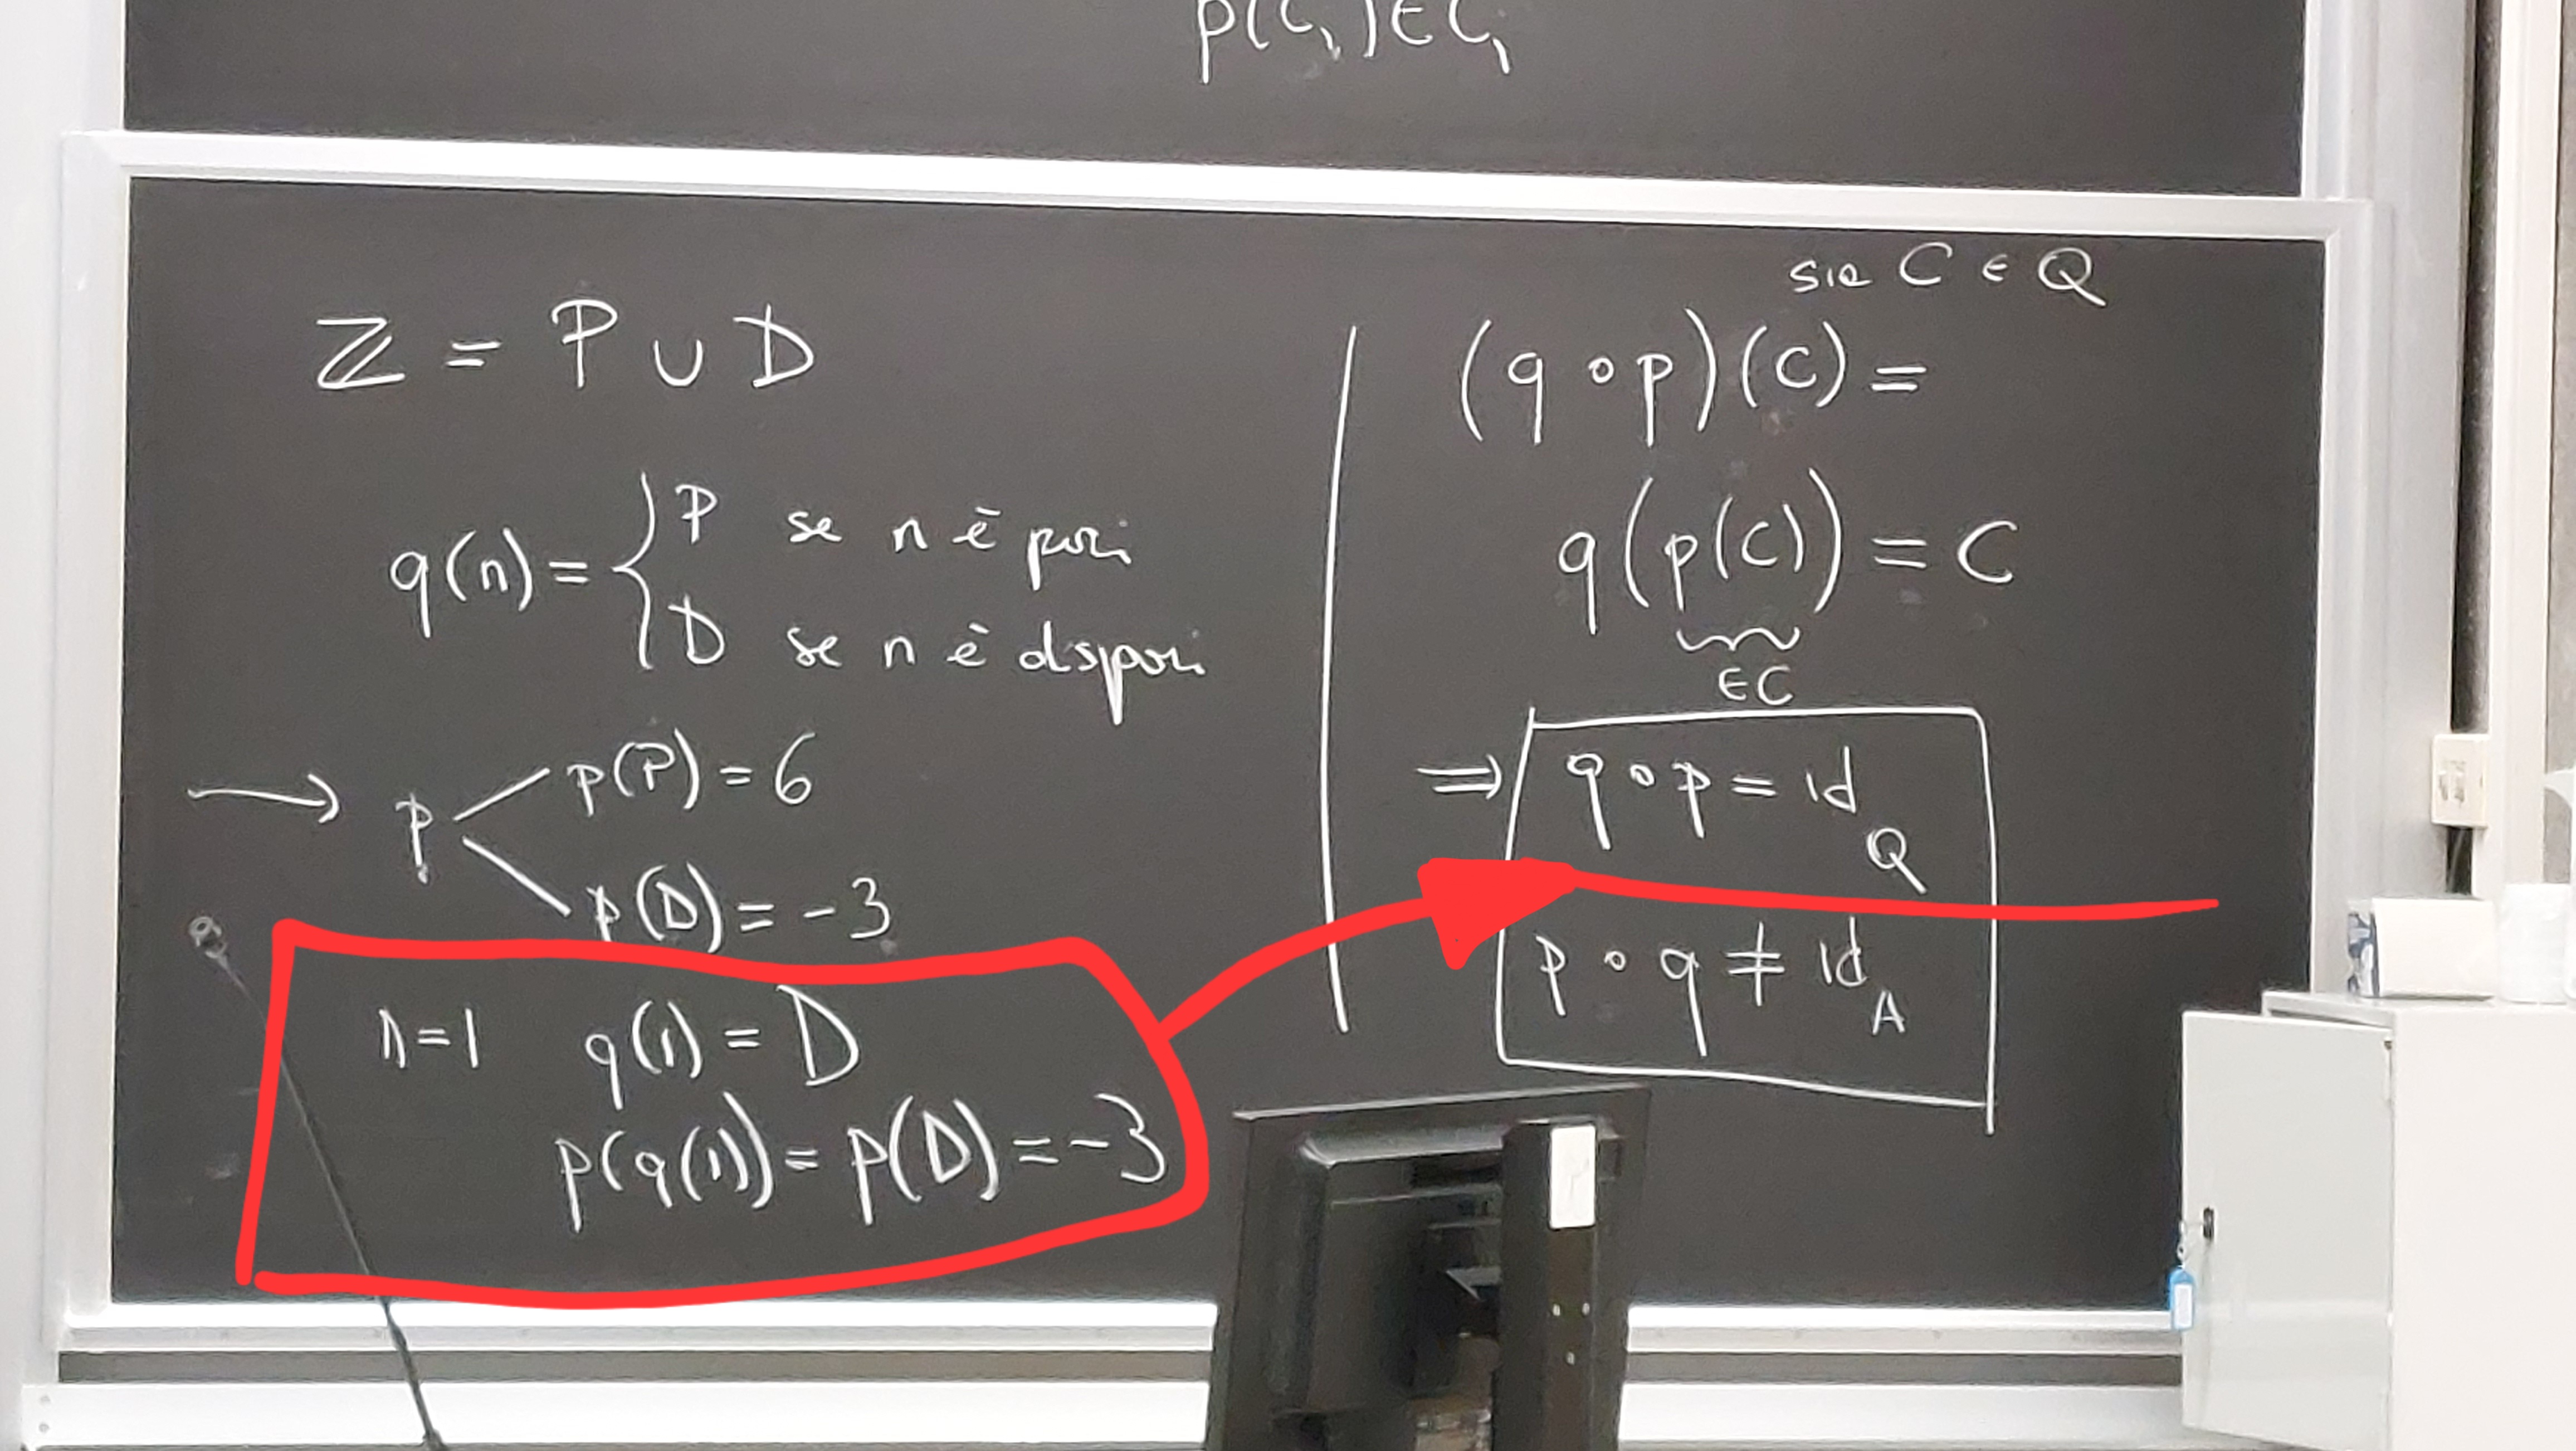 p(C₁) ∈ C₁
ℤ = P ∪ D
q(n) = { P se n è pari
D se n è dispari
→ p p(P) = 6
p(D) = -3
n=1 q(1) = D
p(q(1)) = p(D) = -3
sia C ∈ Q
(q ∘ p)(C) =
q(p(C)) = C
∈C
⇒ q ∘ p = id_Q
p ∘ q ≠ id_A